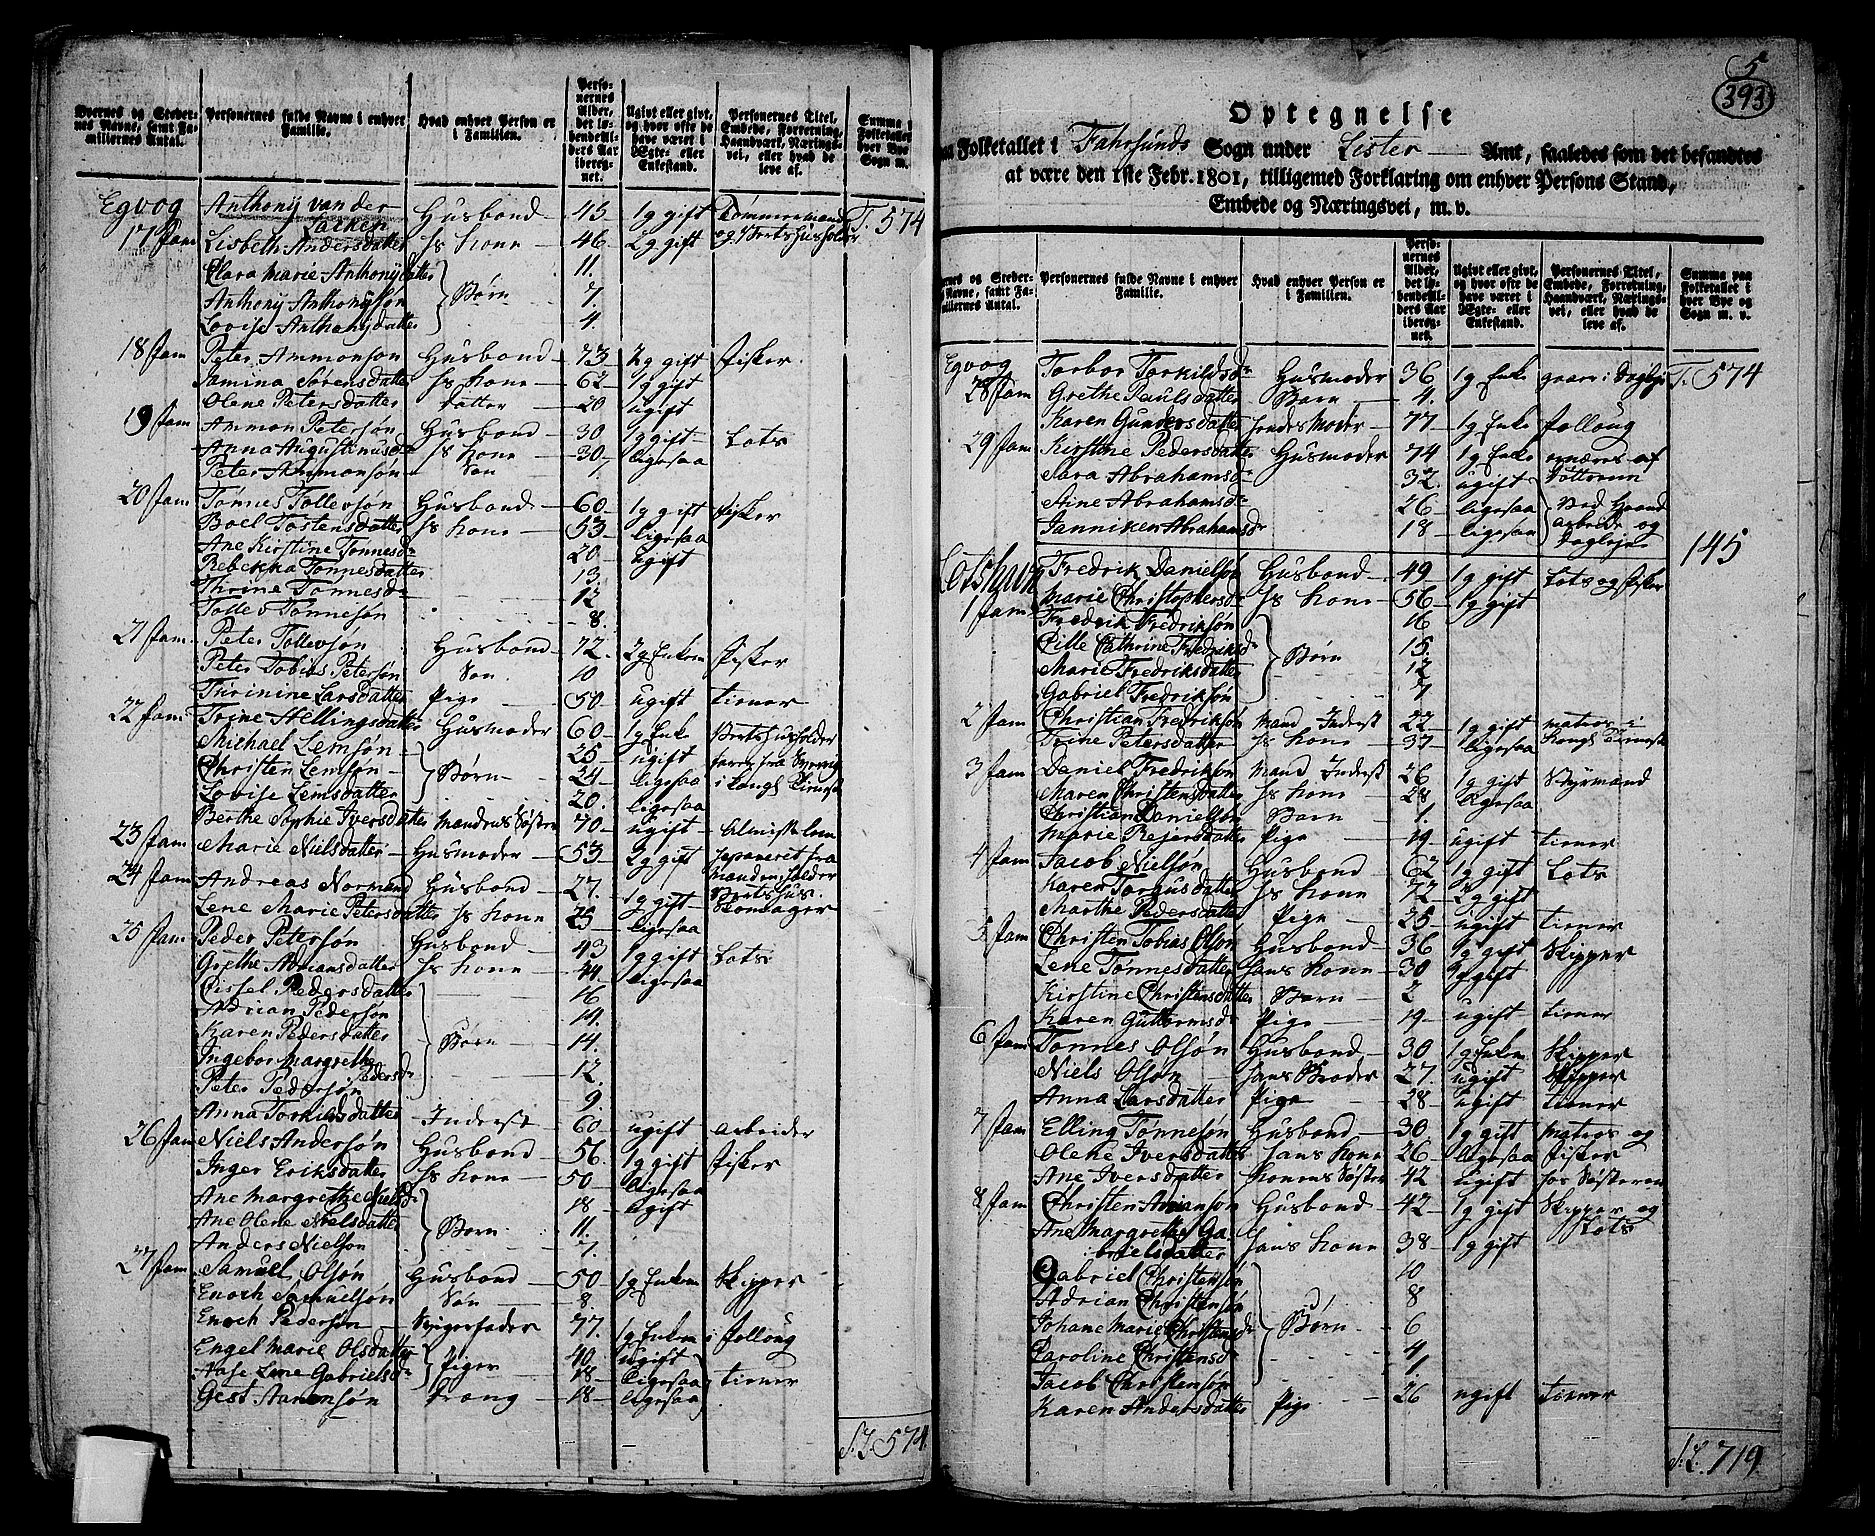 Byernes og Stedernes Navne, samt Familiernes Antal.
Personernes fulde Navne i enhver Familie.
Hvad enhver Person er i Familien.
Personernes Alder, det løbende Alders Aar iberegnet.
Ugivt eller givt, og hvor ofte de have været i Ægte- eller Enkestand.
Personernes Titel, Embede, Forretning, Haandværk, Næringsvei, eller hvad de leve af.
Summa Folketallet hver Bye Sogn m.
Egvog Anthonij van der Husbond 45 1g gift Tømmermand T. 574
17 Fam Lisbeth Andersdatter hs Kone 46 2g gift
Clara Marie Anthonijdatter 11.
Anthonij Anthonijsøn Børn 7
Lovise Anthonijdatter 4.
18 Fam Peter Ammonsøn Husbond 73 2g gift fisker
Jamina Sørensdatter hs Kone 62 1g gift
Olene Petersdatter datter 20 ugift
19 Fam Ammon Petersøn Husbond 30 1g gift Lots
Anna Augustinusd hs Kone 30 ligesaa
Peter Ammonsøn Søn 1
20 Fam Tønnes Tollevsøn Husbond 60 1g gift fisker
Boel Tostensdatter hs Kone 53 ligesaa
Ane Kirstine Tønnesd 20 ugift
Rebekka Tønnesdatter 13.
Thrine Tønnesd 12
Tollev Tønnesøn 8.
21 Fam Peter Tollevsøn Husbond 72. 2g Enkem fisker
Peter Tobias Petersøn Søn 10
Turinine Larsdatter Pige 50 ugift tiener
22 Fam Trine Hellingsdatter Husmoder 60 1g Enke
Michael Lemsøn 25 ugift
Christen Lemsøn Børn 24 ligesaa
Lovise Lemsdatter 20. ligesaa
Berthe Sophie Iversdatter Mandens Søster 70 ugift
23 Fam Marie Nielsdatter Husmoder 53 2g gift
24 Fam Andreas Normand Husbond 27. 1g gift
Lene Marie Petersdatter hs Kone 25 ligesaa Skomager
25 Fam Peder Petersøn Husbond 43 1g gift Lots
Grethe Adriansdatter hs Kone 44. ligesaa
Cissel Pedersdatter 16
Adrian Pedersøn 14.
Karen Pedersdatter Børn 14.
Ingebor Margrethe Pedersd 12.
Peter Pedersøn 9.
Anna Torkildsdatter Inderst 60 ugift arbeider
26 Fam Niels Andersøn Husbond 56. 1g gift fisker
Inger Eriksdatter hs Kone 50 ligesaa
Ane Margrethe Nielsd 18 ugift
Ane Olene Nielsdatter Børn 11.
Anders Nielsøn 7.
27 Fam Samuel Olsøn Husbond 50 1g Enkem Skipper
Enoch Samuelsøn Søn 8.
Enoch Pedersøn Svigerfader 77. 1g Enkem i follaug
Engel Marie Olsdatter Piger 40 ugift
Aase Lene Gabrielsd 18 ligesaa tiener
Gest Aanensøn Dreng 18 ligesaa
S. T. 574.
5
393
Optegnelse
Folketallet i Fahrsunds Sogn under Lister Amt, saaledes som det befandtes
at være den 1ste Febr. 1801, tilligemed Forklaring om enhver Persons Stand,
Embede og Næringsvei, m. v.
Personernes fulde Navne i enhver Familie.
Hvad enhver Person er i Familien.
Personernes Alder, det løbende Alders Aar iberegnet.
Ugivt eller givt, og hvor ofte de have været i Ægte- eller Enkestand.
Personernes Titel, Embede, Forretning, Haandværk, Næringsvei, eller hvad de leve af.
Summa paa Folketallet i hver Bye og Sogn m. v.
Egvog Torbor Torkildsd Husmoder 36 1g Enke T. 574
28 Fam Grethe Paulsdatter Barn 4.
Karen Gundersdatter hendes Moder 77 1g Enke follaug
29 Fam Kirstine Pedersdatter Husmoder 74 1g Enke ernæres af
Sara Abrahamsd 32. ugift Døttrene
Aine Abrahamsd 26 ligesaa Ved Haand
Janniken Abrahamsd 18 ligesaa arbeide og 145
Fredrik Danielsøn Husbond 49 1g gift Lots og fisker
1 Fam Marie Christophersd hs Kone 56 1g gift
Fredrik Fredriksøn 16
Cille Cathrine Fredriksd Børn 15.
Marie Fredriksdatter 12
Gabriel Fredriksøn 7
2 Fam Christian Fredriksøn Mand Inderst 22 1g gift matros i
Trine Petersdatter hs Kone 37 ligesaa
3 Fam Daniel Fredriksøn Mand Inderst 26 1g gift Styrmand
Maren Christensdatter hs Kone 28 ligesaa
Christian Danielsøn Barn 1.
Marie Rejersdatter Pige 19 ugift tiener
4 Fam Jacob Nielsøn Husbond 62 1g gift Lots
Karen Torgusdatter hs Kone 72 2g gift
Marthe Pedersdatter Pige 25 ugift tiener
5 Fam Christen Tobias Olsøn Husbond 36 1g gift Skipper
Lene Tønnesdatter hans Kone 30 gift
Kirstine Christensdatter Barn 2
Karen Guttormsd Pige 19 ugift tiener
6 Fam Tønnes Olsøn Husbond 30 1g Enkem Skipper
Niels Olsøn hans Broder 27. ugift Skipper
Anna Larsdatter Pige 28 ugift tiener
7 Fam Elling Tønnesøn Husbond 30 1g gift matros og
Olene Iversdatter hans Kone 26 ligesaa fisker
Ane Iversdatter Konens Søster 42 ugift hos Søsteren
8 Fam Christen Adriansøn Husbond 42 1g gift Skipper og
Ane Margrethe Ga- Lots
brielsdatter hans Kone 38 1g gift
Gabriel Christensøn 10
Adrian Christensøn 8
Johane Marie Christensd Børn 6
Caroline Christensd 4
Jacob Christensøn 1.
Karen Andersdatter Pige 26 ugift tiener
S. L. 719